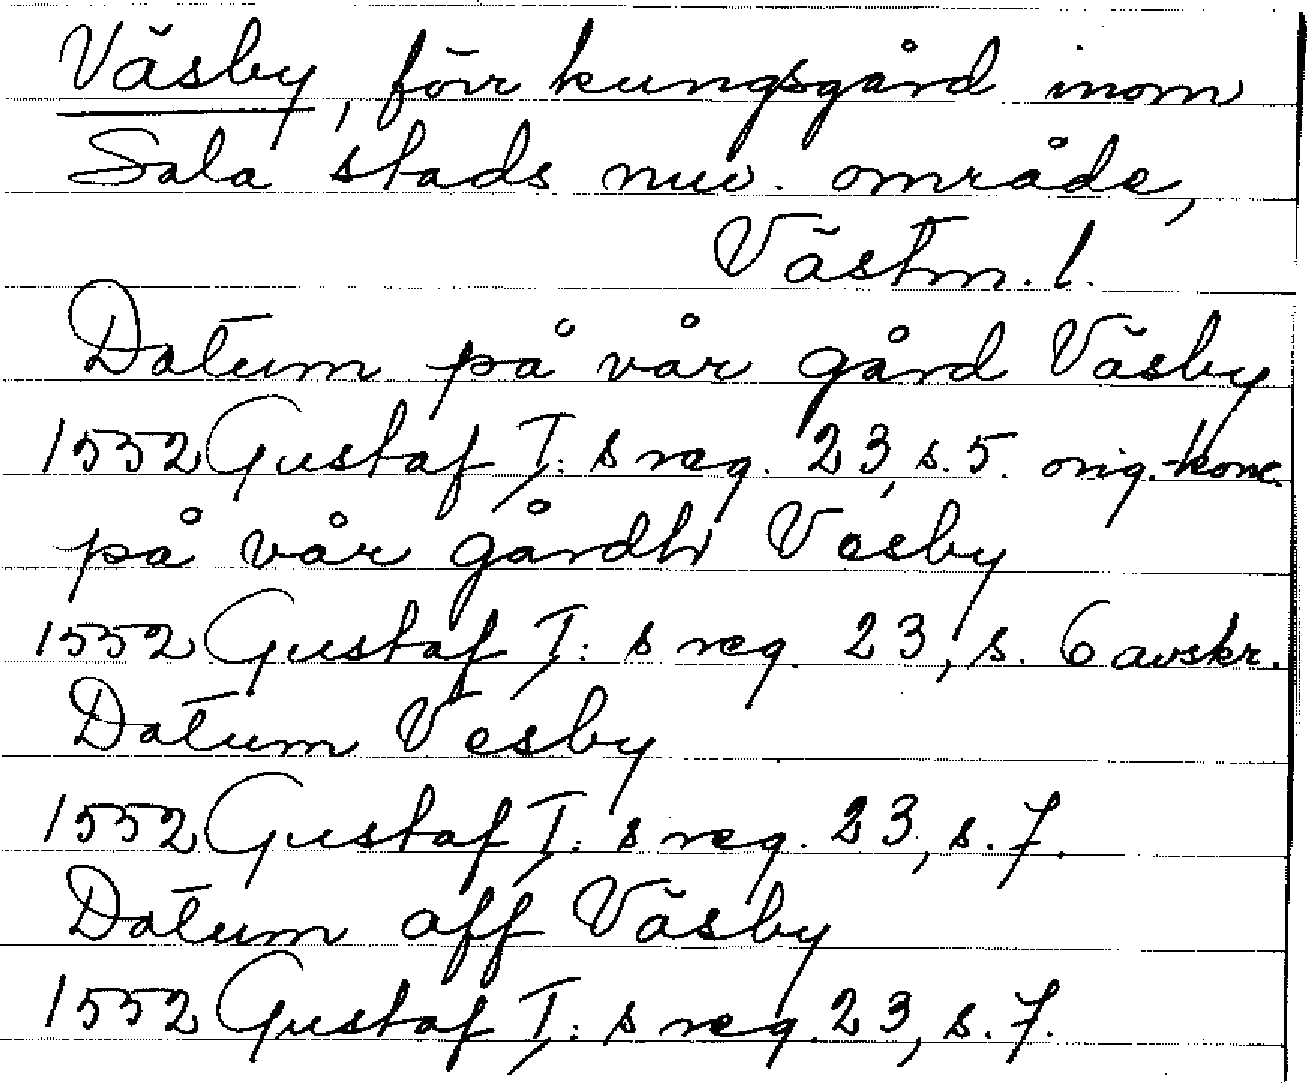 Väsby, förr kungsgård inom
Sala stads nuv. område,
Västm. l.
Datum på vår gård Väsby
1552 Gustaf I:s reg. 23, s. 5. orig. konc.
på vår gårdh Vesby
1552 Gustaf I:s reg. 23, s. 6 avskr.
Datum Vesby
1552 Gustaf I:s reg. 23, s. 7.
Datum aff Väsby
1552 Gustaf I:s reg. 23, s. 7.